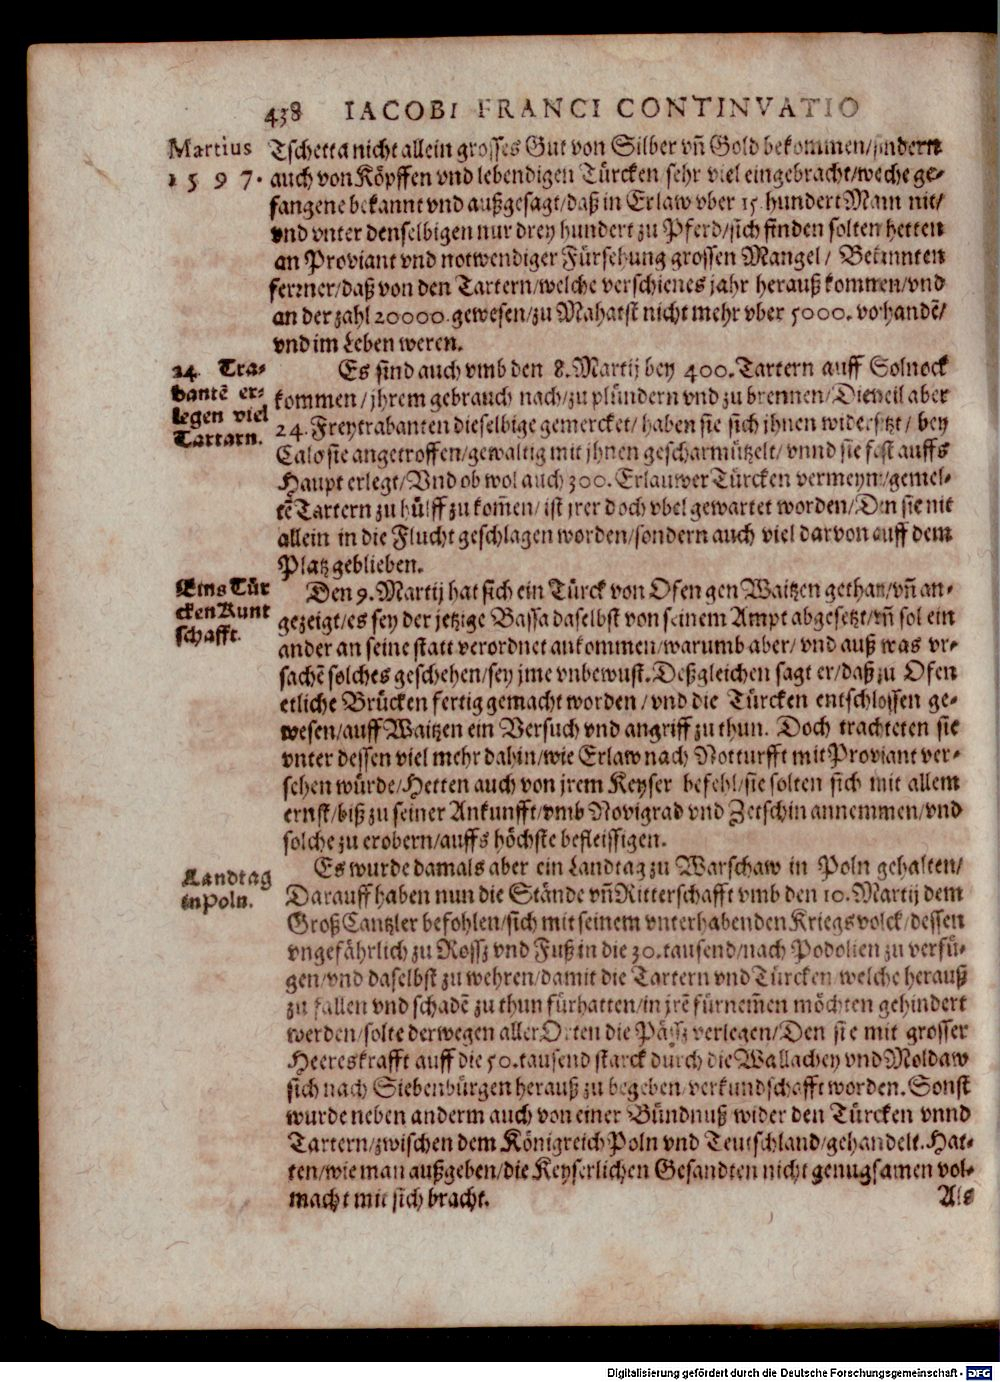 438 IACOBI FRANCI CONTINVATIO
Martius
1 5 9 7.
Tschetta nicht allein grosses Gut von Silber vñ Gold bekommen/sondern
auch von Köpffen vnd lebendigen Türcken sehr viel eingebracht/welche ge-
fangene bekannt vnd außgesagt/daß in Erlaw vber 15 hundert Mann nit/
vnd vnter denselbigen nur drey hundert zu Pferd/sich finden solten hetten
an Proviant vnd notwendiger Fürsehung grossen Mangel/ Bekannten
ferrner/daß von den Tartern/welche verschienes jahr herauß kommen/vnd
an der zahl 20000. gewesen/zu Mahatst nicht mehr vber 5000. vorhandē/
vnd im Leben weren.
24. Tra-
bantē er-
legen viel
Tartarn.
Es sind auch vmb den 8. Martij bey 400. Tartern auff Solnock
kommen/jhrem gebrauch nach/zu plündern vnd zu brennen/Dieweil aber
24. Freytrabanten dieselbige gemercket/haben sie sich jhnen widersetzt/ bey
Calo sie angetroffen/gewaltig mit jhnen gescharmützelt/vnnd sie fast auffs
Haupt erlegt/Vnd ob wol auch 300. Erlauwer Türcken vermeynt/gemel-
tē Tartern zu hülff zu kom̃en/ ist jrer doch vbel gewartet worden/Den sie nit
allein in die Flucht geschlagen worden/sondern auch viel darvon auff dem
Platz geblieben.
Eins Tür
cken Kunt
schafft.
Den 9. Martij hat sich ein Türck von Ofen gen Waitzen gethan/vñ an-
gezeigt/es sey der jetzige Bassa daselbst von seinem Ampt abgesetzt/vñ sol ein
ander an seine statt verordnet ankommen/warumb aber/ vnd auß was vr-
sachē solches geschehen/sey jme vnbewust. Deßgleichen sagt er/daß zu Ofen
etliche Brücken fertig gemacht worden/vnd die Türcken entschlossen ge-
wesen/auff Waitzen ein Versuch vnd angriff zu thun. Doch trachteten sie
vnter dessen viel mehr dahin/wie Erlaw nach Notturfft mit Proviant ver-
sehen würde/Hetten auch von jrem Keyser befehl/sie solten sich mit allem
ernst/biß zu seiner Ankunfft/vmb Novigrad vnd Zetschin annemmen/vnd
solche zu erobern/auffs höchste befleissigen.
Landtag
in Poln.
Es wurde damals aber ein Landtag zu Warschaw in Poln gehalten/
Darauff haben nun die Stände vñ Ritterschafft vmb den 10. Martij dem
Groß Cantzler befohlen/sich mit seinem vnterhabenden Kriegsvolck/dessen
vngefährlich zu Rossz vnd Fuß in die 30. tausend/nach Podolien zu verfü-
gen/vnd daselbst zu wehren/damit die Tartern vnd Türcken welche herauß
zu fallen vnd schadē zu thun fürhatten/in jrē fürnem̃en möchten gehindert
werden/solte derwegen aller Orten die Pässz verlegen/Den sie mit grosser
Heereskrafft auff die 50. tausend starck durch die Wallachey vnd Moldaw
sich nach Siebenbürgen herauß zu begeben/verkundschafft worden. Sonst
wurde neben anderm auch von einer Bündnuß wider den Türcken vnnd
Tartern/zwischen dem Königreich Poln vnd Teutschland/gehandelt. Hat-
ten/wie man außgeben/die Keyserlichen Gesandten nicht genugsamen vol-
macht mit sich bracht.
Als
Digitalisierung gefördert durch die Deutsche Forschungsgemeinschaft - DFG